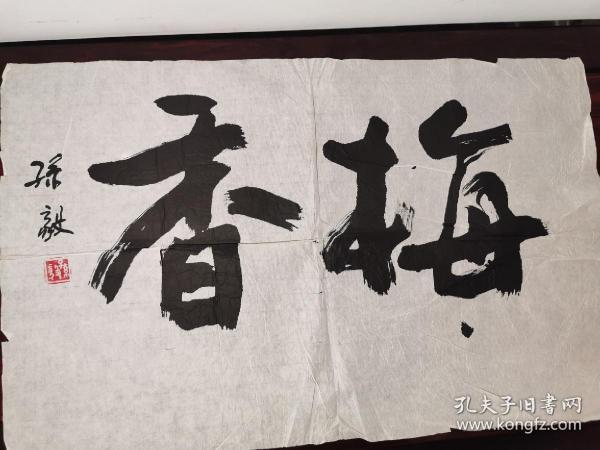 梅香
孫毅
孔夫子旧書网
www.kongfz.com